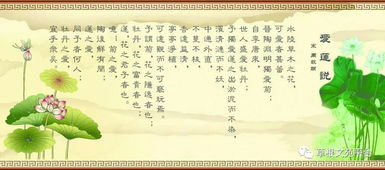 愛蓮説
宋 周敦頤
水陸草木之花，
可愛者甚蕃。
晉陶淵明獨愛菊；
自李唐來，
世人盛愛牡丹；
予獨愛蓮之出淤泥而不染，
濯清漣而不妖，
中通外直，
不蔓不枝，
香遠益清，
亭亭淨植，
可遠觀而不可褻玩焉。
予謂菊，花之隱逸者也；
牡丹，花之富貴者也；
蓮，花之君子者也。
噫！菊之愛，
陶後鮮有聞；
蓮之愛，
同予者何人？
牡丹之愛，
宜乎衆矣。
草根文苑